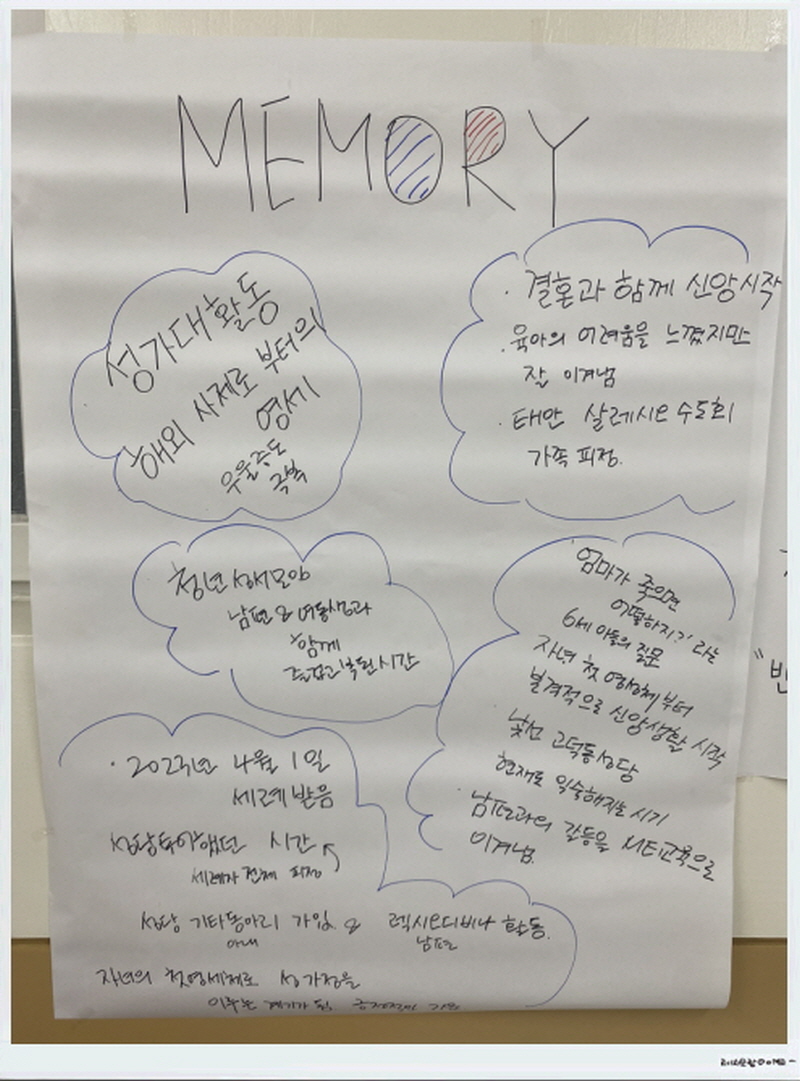 MEMORY
성가대활동
해외 사제로 부터의
영세
우울증도
극복
· 결혼과 함께 신앙시작
· 육아의 어려움을 느꼈지만
잘 이겨냄
· 태안 살레시오 수도회
가족 피정.
청년 성서모임
남편 & 여동생과
함께
즐겁고 복된 시간
'엄마가 죽으면
어떡하지?' 라는
6세 아들의 질문
자녀 첫 영성체부터
본격적으로 신앙생활 시작
낯선 고덕동성당
현재도 익숙해지는 시기
· 남편과의 갈등을 ME교육으로
이겨냄.
· 2023년 4월 1일
세례 받음
시간
세례자 전체 피정
성당 기타동아리 가입 & 렉시오디비나 활동.
아내 남편
자녀의 첫영세제로 성가정을
이루는 계기가 됨.
"반